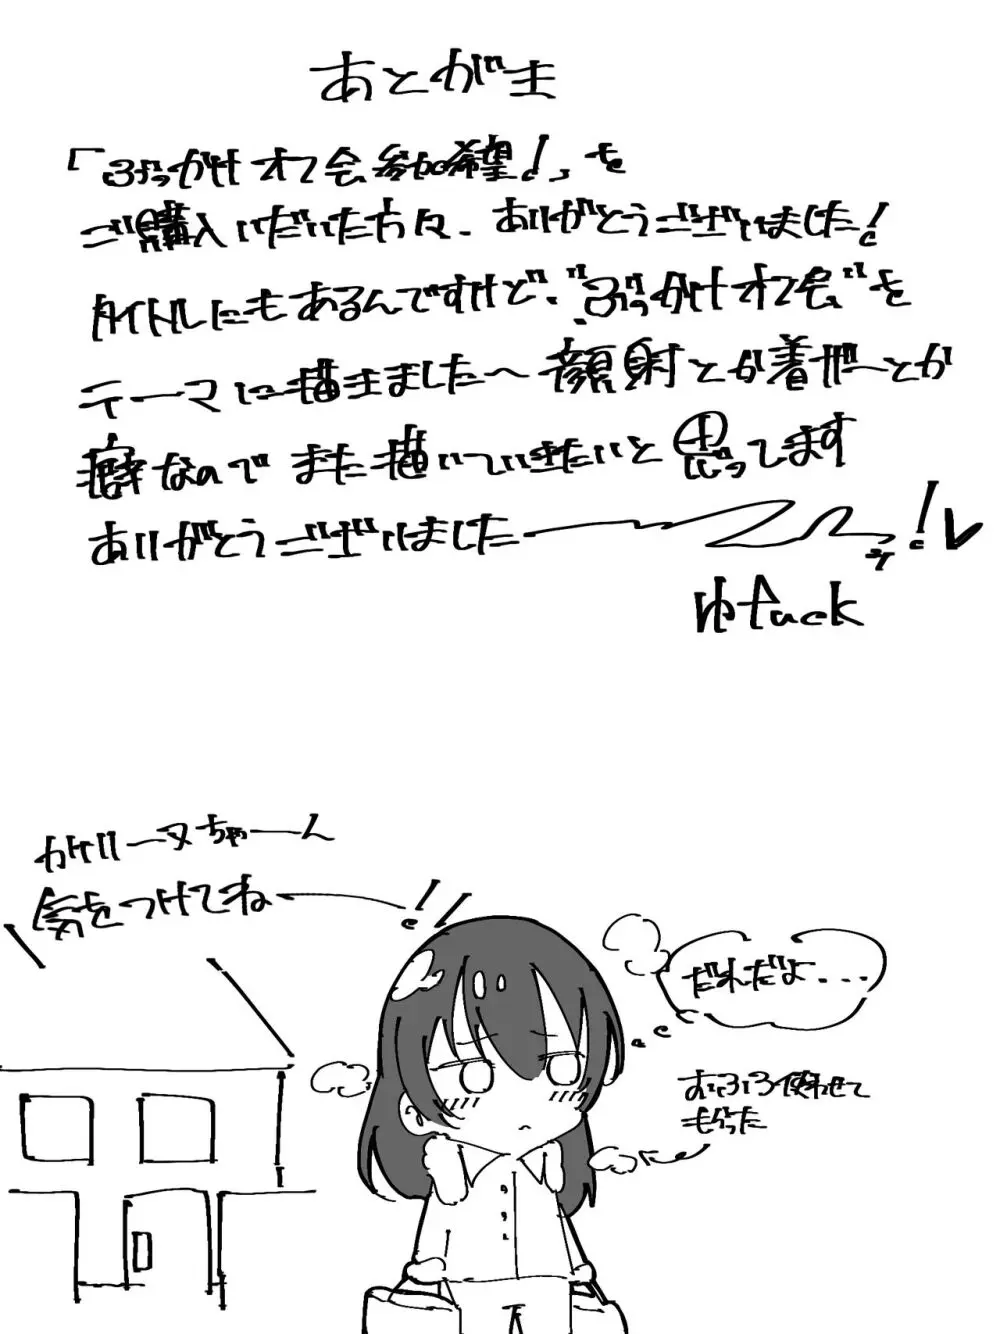 あとがき
「ぶっかけオフ会参加希望!」を
ご購入いただいた方々、ありがとうございました!
タイトルにもあるんですけど、"ぶっかけオフ会"を
テーマに描きました〜顔射とか着ザーとか
癖なのでまた描いていきたいと思ってします
ありがとうございましたー!!
ゆtuck
がけりーヌちゃーん
気をつけてねー!!
だれだよ...
おふろ使わせて
もらった